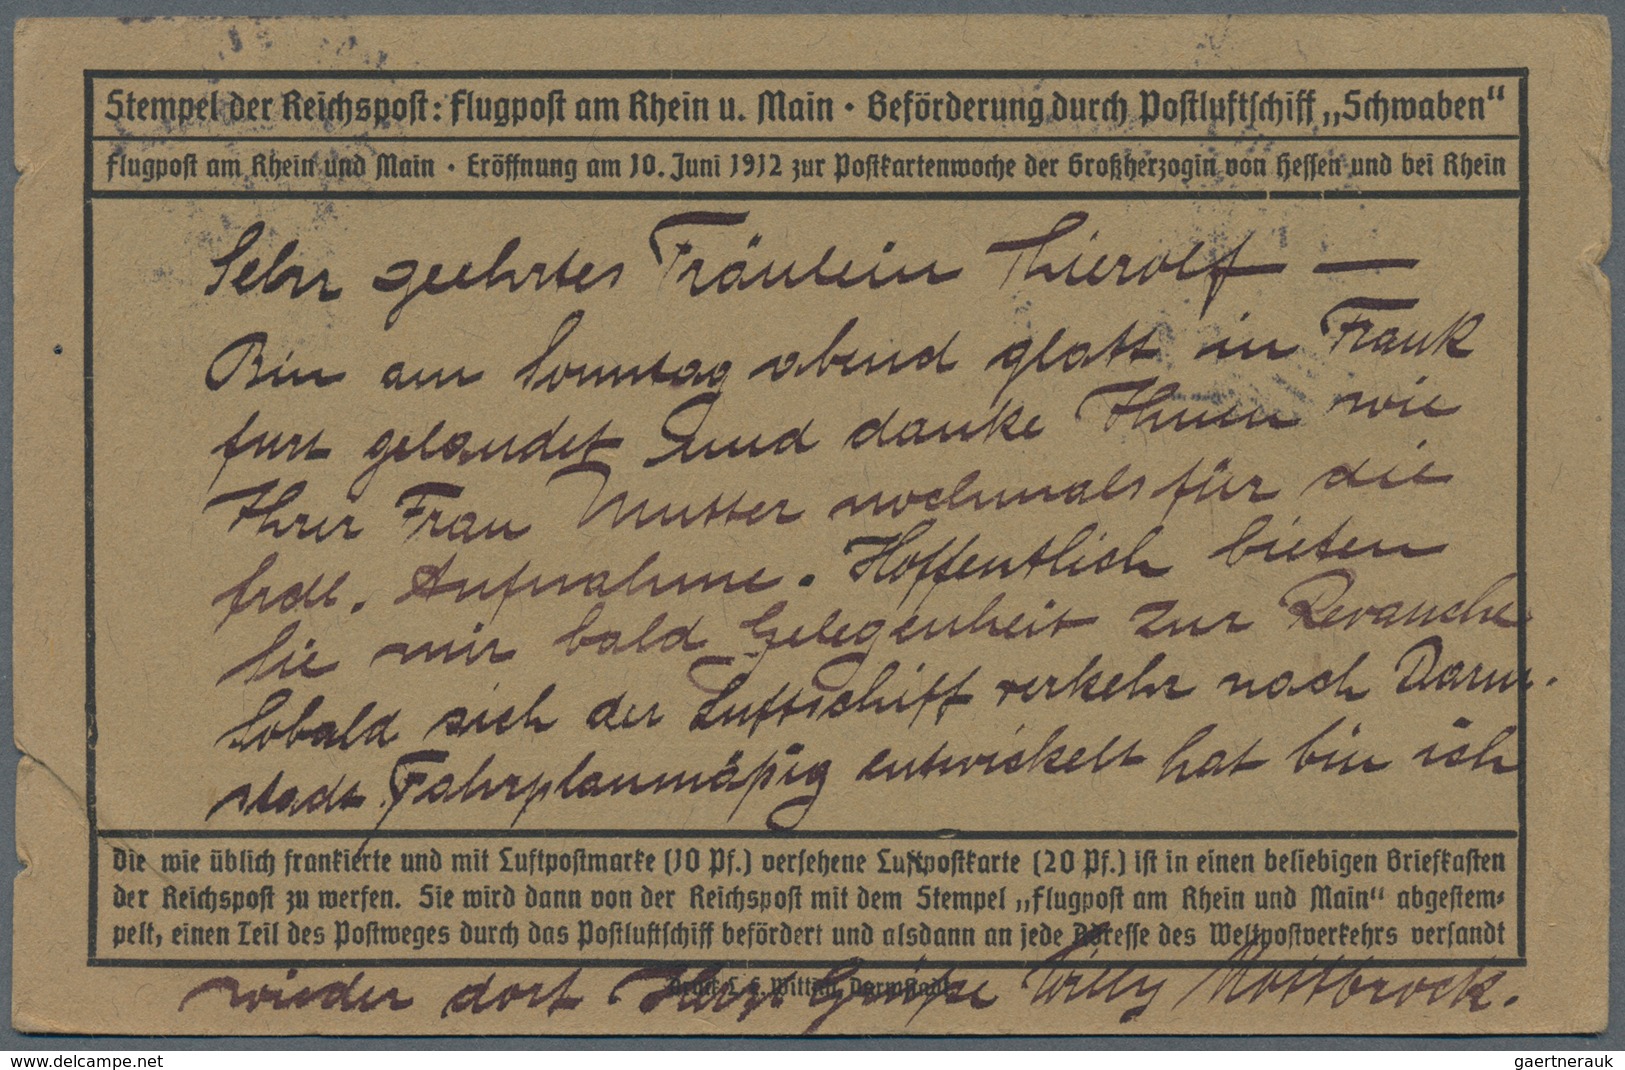 Stempel der Reichspost: Flugpost am Rhein u. Main · Beförderung durch Postluftschiff „Schwaben"
Flugpost am Rhein und Main · Eröffnung am 10. Juni 1912 zur Postkartenwoche der Großherzogin von Hessen und bei Rhein
Sehr geehrtes Fräulein Thierolf —
Bin am Sonntag abend glatt in Frank
furt gelandet und danke Ihnen wie
Ihrer Frau Mutter nochmals für die
frdl. Aufnahme. Hoffentlich bieten
Sie mir bald Gelegenheit zur Revanche
Sobald sich der Luftschiffverkehr nach Darm-
stadt Fahrplanmäßig entwickelt hat bin ich
Die wie üblich frankierte und mit Luftpostmarke (10 Pf.) versehene Luftpostkarte (20 Pf.) ist in einen beliebigen Briefkasten
der Reichspost zu werfen. Sie wird dann von der Reichspost mit dem Stempel „Flugpost am Rhein und Main" abgestem-
pelt, einen Teil des Postweges durch das Postluftschiff befördert und alsdann an jede Adresse des Weltpostverkehrs versandt
wieder dort Herzl Grüße Willy
Druck L. C. Wittich, Darmstadt
www.delcampe.net
gaertnerauk